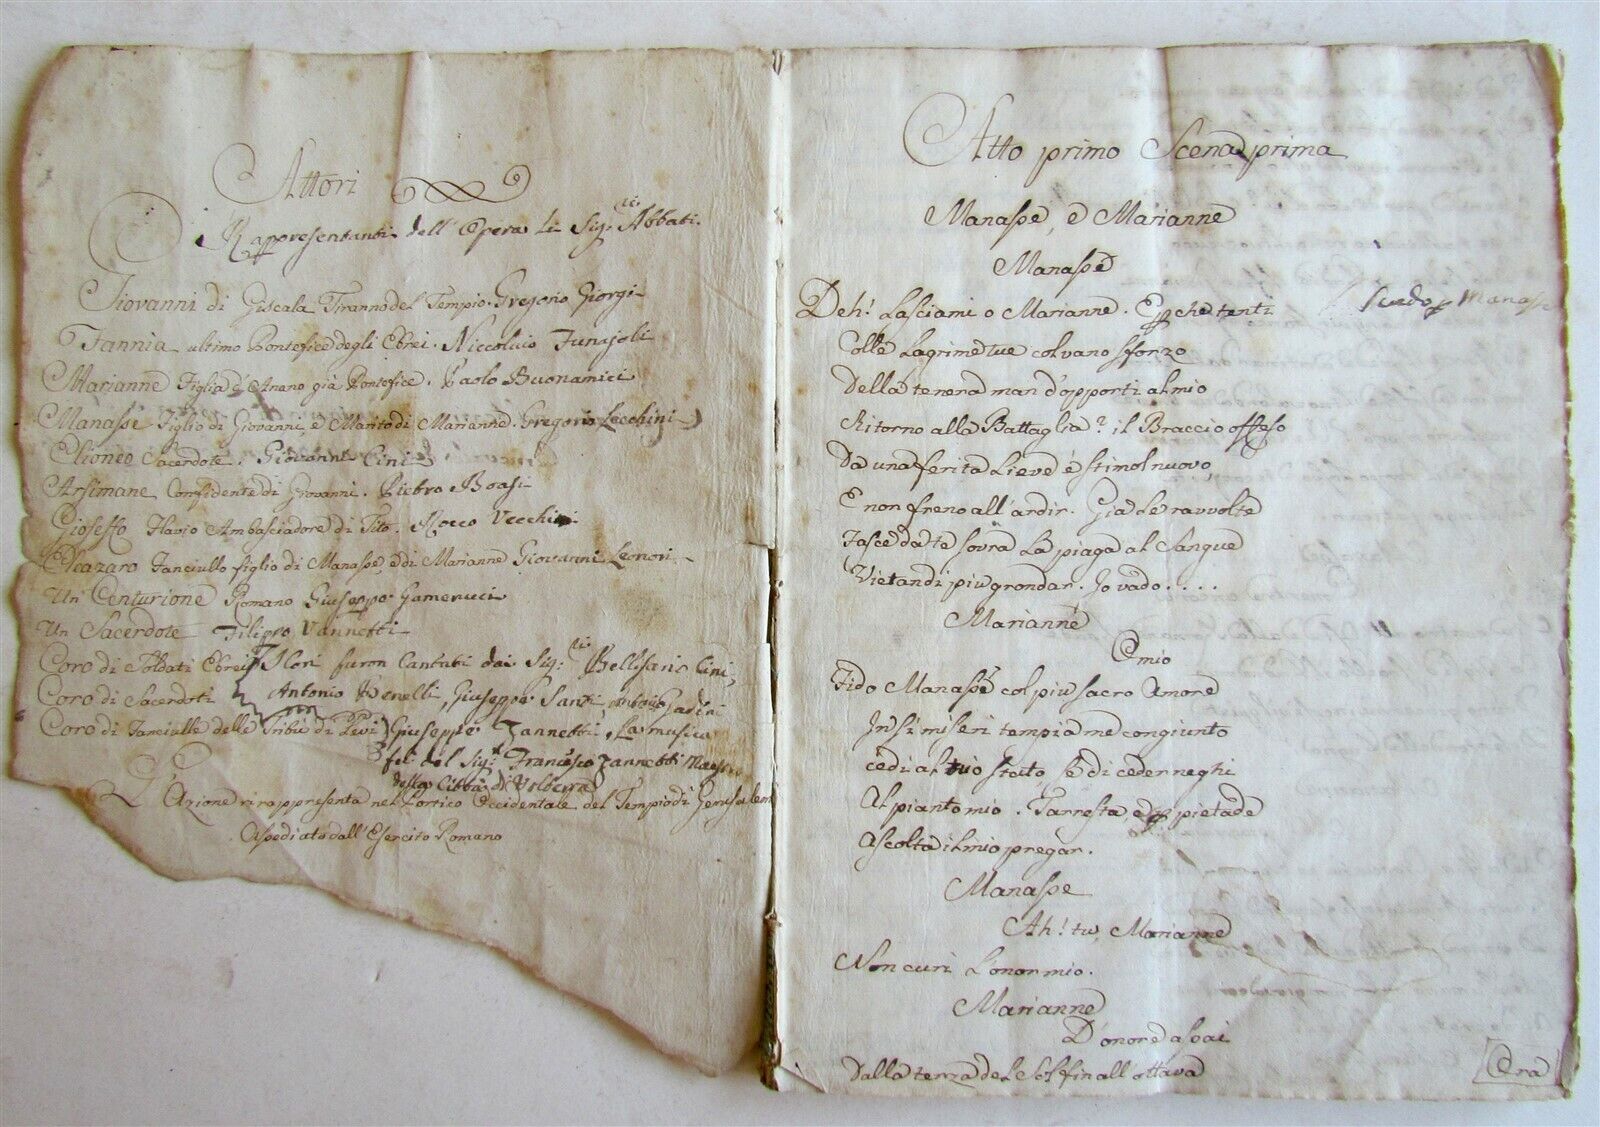 Attori
Rappresentanti dell'Opera li Sig.ri Abbati.
Giovanni di Giscala Tiranno del Tempio. Gregorio Giorgi
Fannia ultimo Pontefice degli Ebrei. Niccolaio Funajoli
Marianne Figlia d'Anano già Pontefice. Paolo Buonamici
Manasse Figlio di Giovanni, e Marito di Marianne. Gregorio Lecchini
Elioneo Sacerdote. Giovanni Cini
Arsimane Confidente di Giovanni. Pietro Boasi
Gioseffo Flavio Ambasciadore di Tito. Rocco Vecchi
Eleazaro Fanciullo figlio di Manasse, e di Marianne Giovanni Leonori
Un Centurione Romano Giuseppe Gamerucci
Un Sacerdote Filippo Vannetti
Coro di Soldati Ebrei I Cori furon Cantati dai Sig:ri Bellisario Cini,
Coro di Sacerdoti Antonio Benelli, Giuseppe Santi, Antonio Gadini
Coro di Fanciulle delle Tribù di Levi Giuseppe Zannetti, La musica
fu del Sig.r Francesco Zannetti Maestro
della Città di Volterra
L'Azione si rappresenta nel Portico Occidentale del Tempio di Gerusalem
Assediato dall'Esercito Romano
Atto primo Scena prima
Manasse, e Marianne
Manasse
Deh! Lasciami o Marianne. E p che tenti
Manasse
Colle Lagrime tue col vano sforzo
Della tenera man d'opporti al mio
Ritorno alla Battaglia? il Braccio offeso
Da una ferita Lieve è stimol nuovo,
E non freno all'ardir. Gia Le ravvolte
Fasce da te sovra La piaga al Sangue
Vietan di più grondar. Io vado....
Marianne
O mio
Fido Manasse col più sacro Amore
In sì miseri tempi a me congiunto
cedi al tuo stato, se di ceder neghi
Al pianto mio. T'arresta, e p pietade
Ascolta il mio pregar.
Manasse
Ah! tu, Marianne
Non curi L'onor mio.
Marianne
D'onore assai
Dalla terza del Sol fin all'ottava
Ora